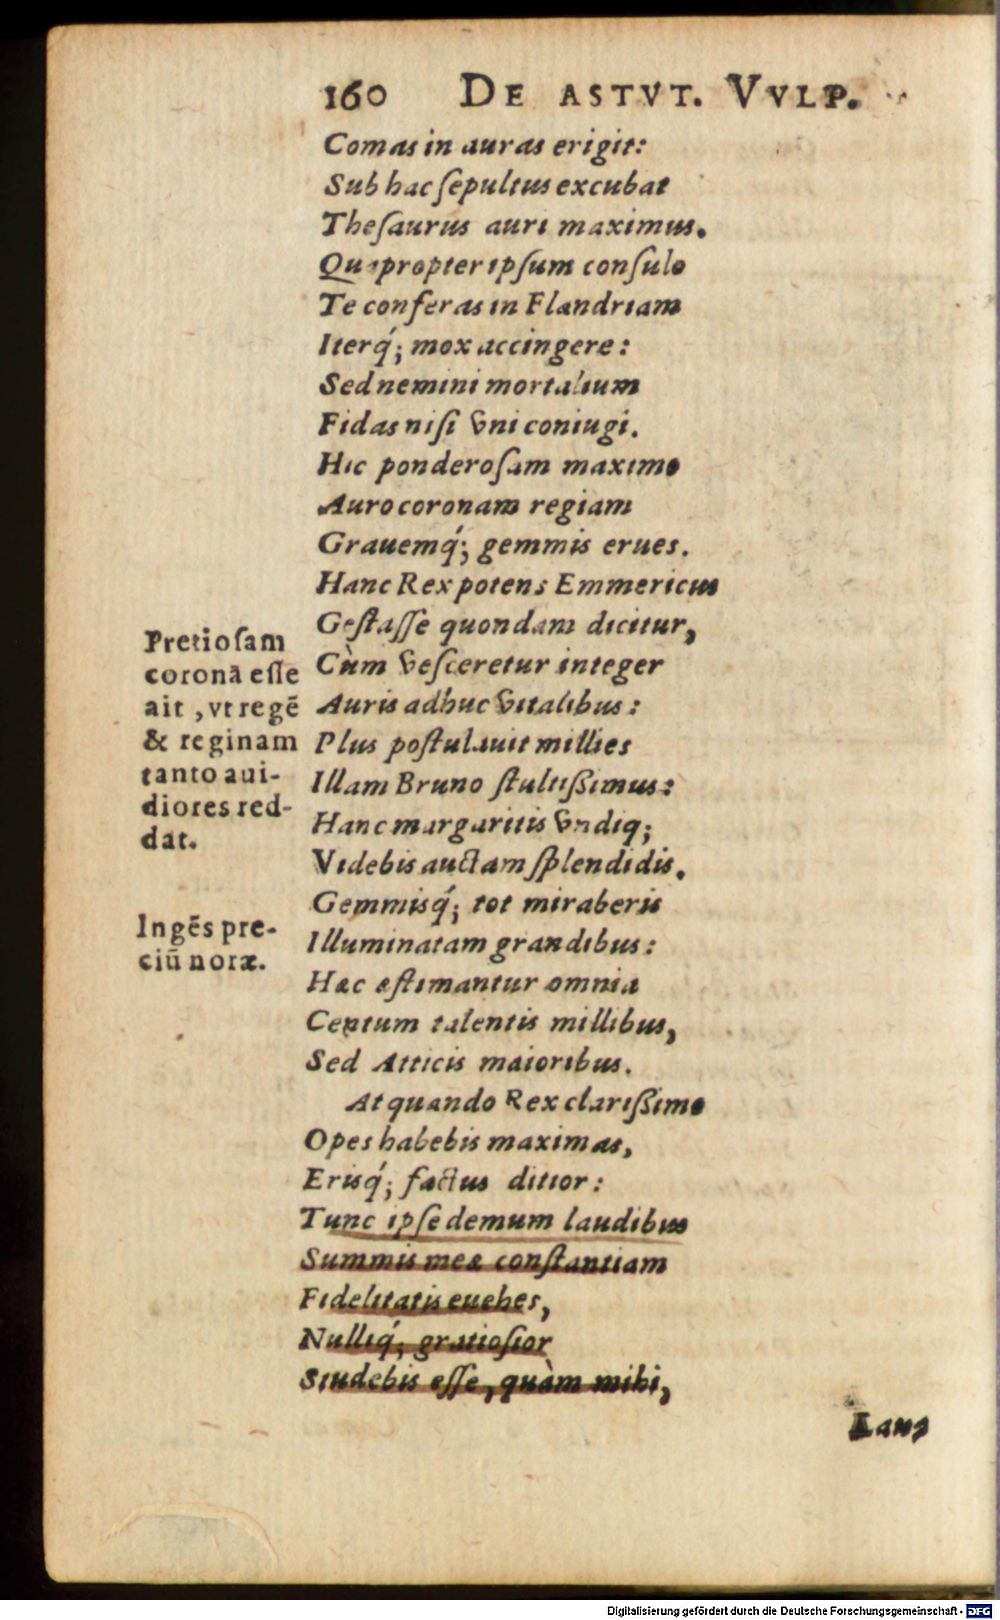 160 DE ASTVT. VVLP.
Comas in auras erigit:
Sub hac ſepultus excubat
Theſaurus auri maximus.
Quapropter ipſum conſulo
Te conferas in Flandriam
Iterq́; mox accingere:
Sed nemini mortalium
Fidas niſi vni coniugi.
Hic ponderoſam maximo
Auro coronam regiam
Grauemq́; gemmis erues.
Hanc Rex potens Emmericus
Geſtaſſe quondam dicitur,
Cùm veſceretur integer
Auris adhuc vitalibus:
Plus poſtulauit millies
Illam Bruno ſtultißimus:
Hanc margaritis vndiq;
Videbis auctam ſplendidis.
Gemmisq́; tot miraberis
Illuminatam grandibus:
Hæc æſtimantur omnia
Centum talentis millibus,
Sed Atticis maioribus.
At quando Rex clarißime
Opes habebis maximas,
Erisq́; factus ditior:
Tunc ipſe demum laudibus
Summis meæ conſtantiam
Fidelitatis euehes,
Nulliq́; gratioſior
Studebis eſſe, quàm mihi,
Pretioſam
coronā eſſe
ait, vt regē
& reginam
tanto aui-
diores red-
dat.
Ingēs pre-
ciū notæ.
Laus
Digitalisierung gefördert durch die Deutsche Forschungsgemeinschaft - DFG